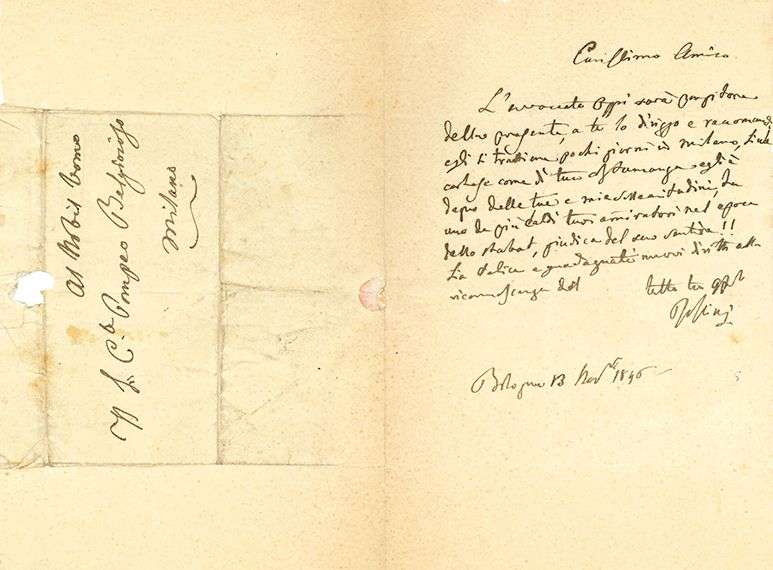 Al Nobil Uomo
Il Sr. Cte Pompeo Belgioioso
Milano
Carissimo Amico
L'avvocato sarà
della presente, a te lo dirigo e raccomando
egli si trattiene pochi giorni in Milano,
cortese come di tuo costume egli è
degno delle tue e mie
uno de più caldi tuoi amiratori nel epoca
dello stabat, giudica del suo sentire!!
sia felice e guadagnati nuovi diritti alla
riconoscenza del tutto tuo
Rossini
Bologna 13 Nove 1846